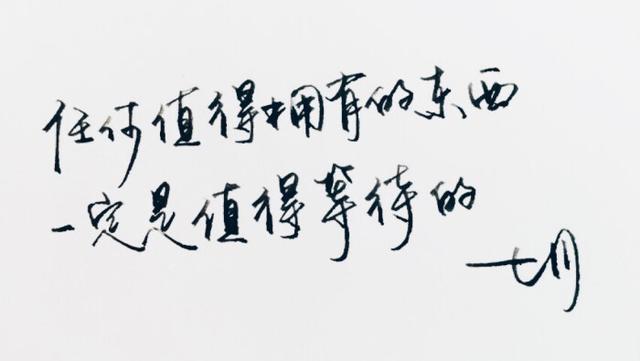 任何值得拥有的东西
一定是值得等待的
七川